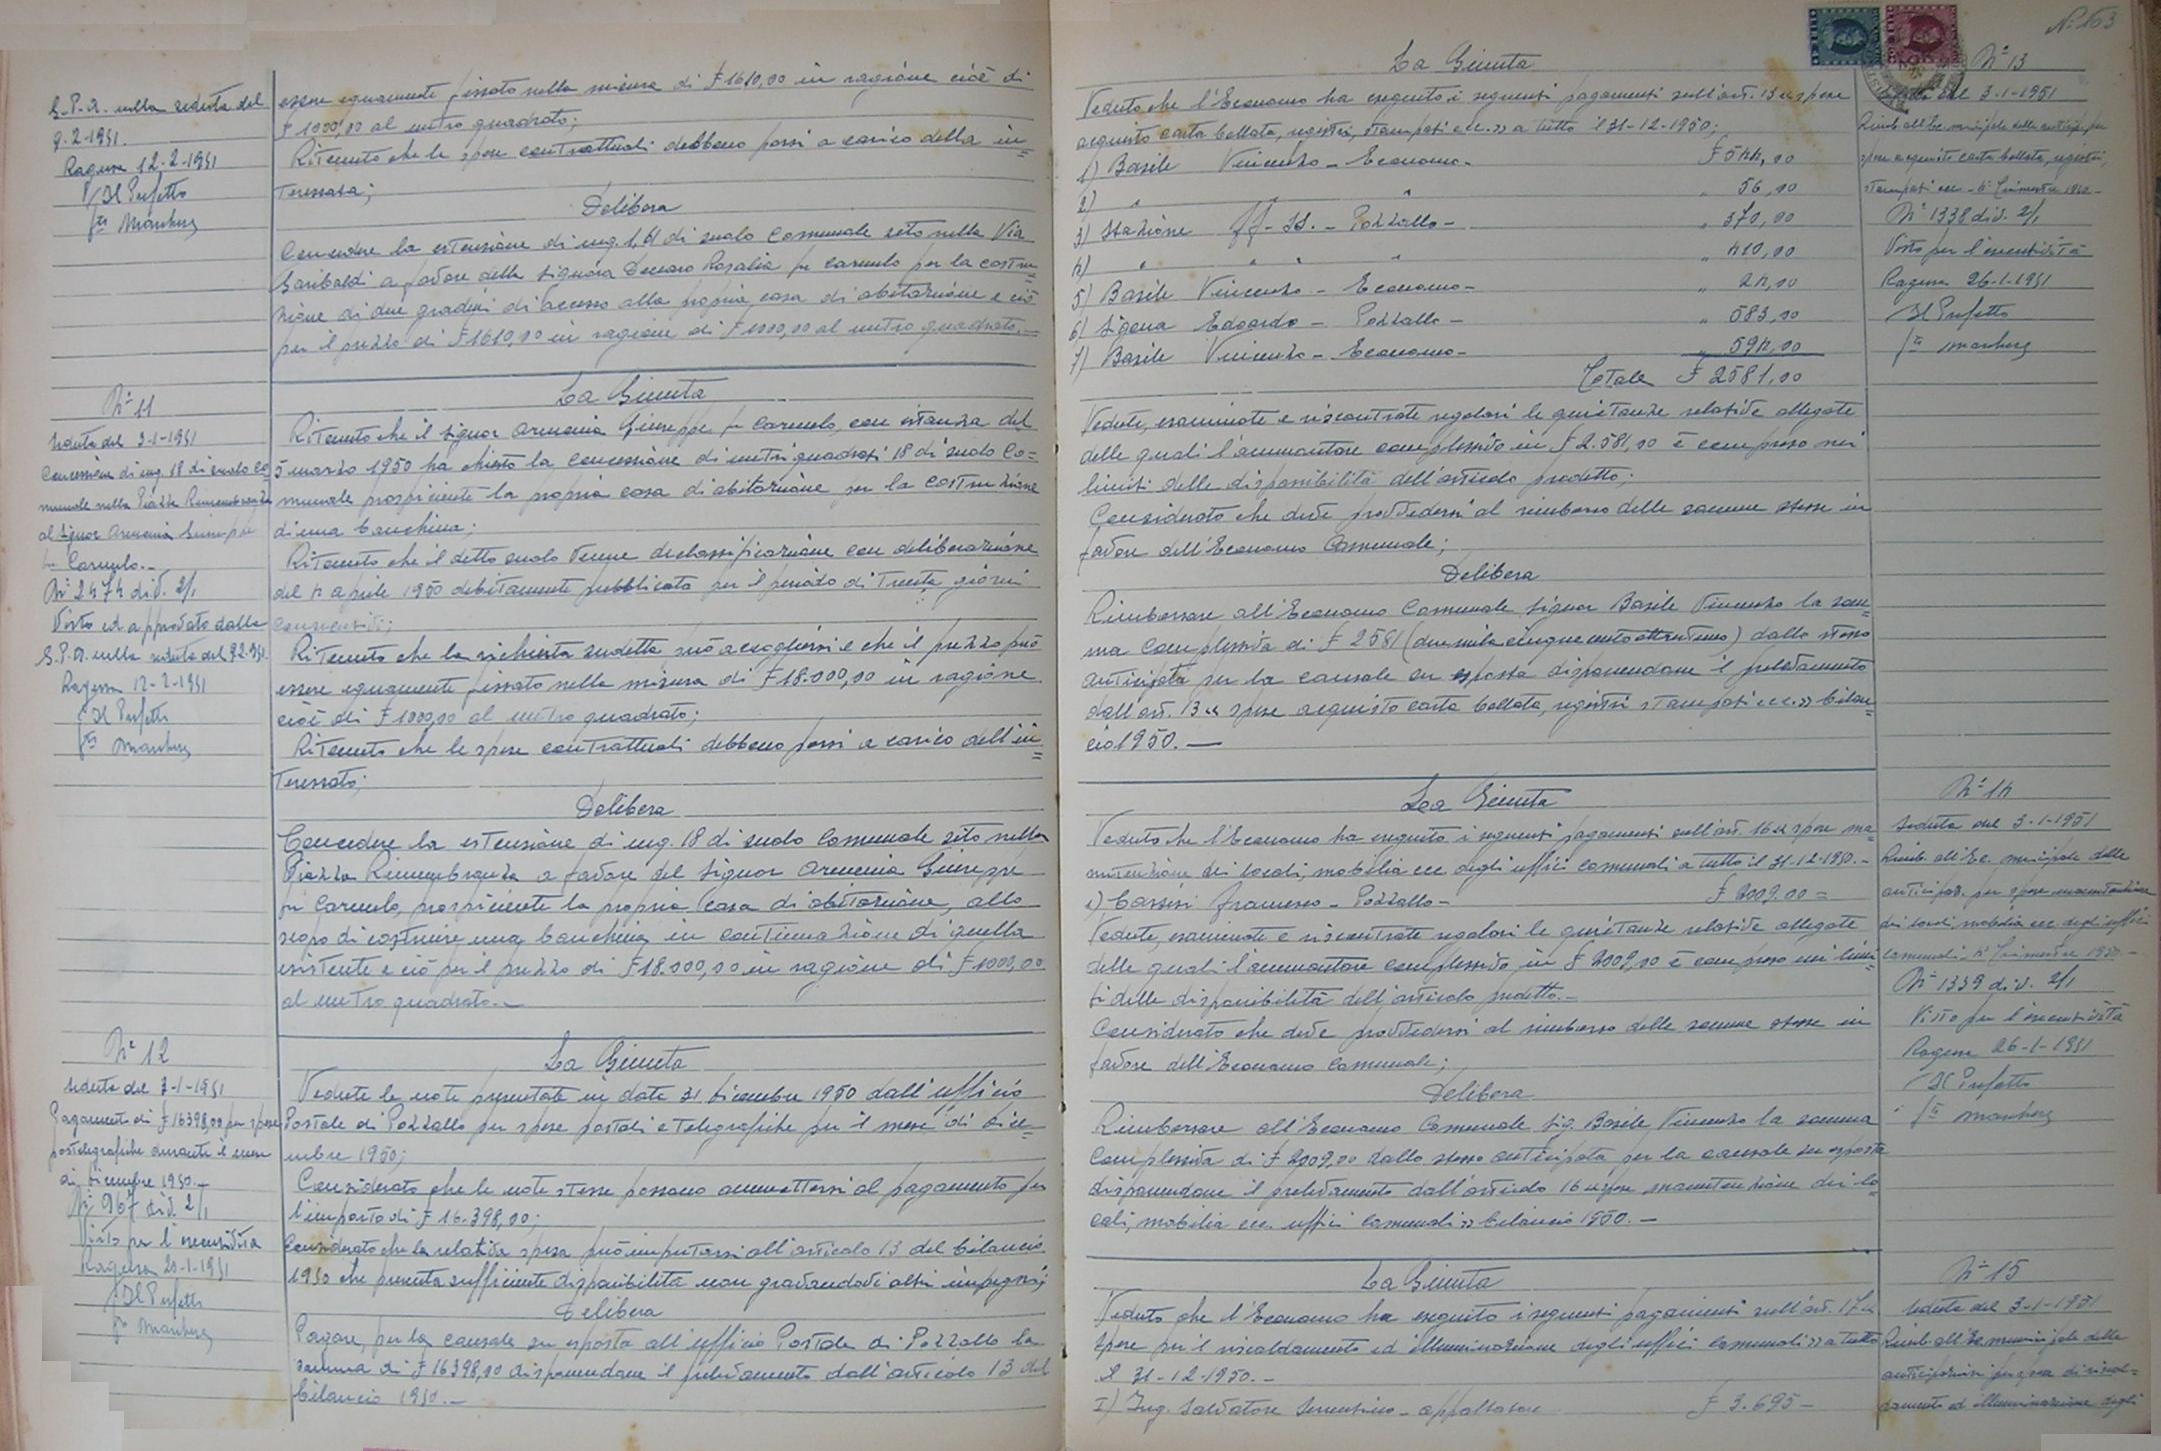 G.P.A. nella seduta del
9-2-1951.
Ragusa 12-2-1951
Il Prefetto
essere equamente fissato nella misura di £ 1610,00 in ragione cioè di
£ 1000,00 al metro quadrato;
Ritenuto che le spese contrattuali debbono porsi a carico della in=
teressata;
Delibera
Concedere la estensione di mq. 1,61 di suolo Comunale sito nella Via
Garibaldi a favore della signora Rosalia fu Carmelo per la costru=
zione di due gradini di accesso alla propria casa di abitazione e ciò
per il prezzo di £ 1610,00 in ragione di £ 1000,00 al metro quadrato.=
N° 11
Seduta del 3-1-1951
Concessione di mq. 18 di suolo Co=
munale nella Piazza Rimembranza
al Signor Armenia Giuseppe
fu Carmelo.-
N° 2474 div. 2/1
Visto ed approvato dalla
G.P.A. nella seduta del 9.2.951.
Ragusa 12-2-1951
Il Prefetto
La Giunta
Ritenuto che il signor Armenia Giuseppe fu Carmelo, con istanza del
5 marzo 1950 ha chiesto la concessione di metri quadrati 18 di suolo Co=
munale prospiciente la propria casa di abitazione per la costruzione
di una banchina;
Ritenuto che il detto suolo venne declassificazione con deliberazione
del 4 aprile 1950 debitamente pubblicata per il periodo di trenta giorni
consecutivi;
Ritenuto che la richiesta sudetta può accogliersi e che il prezzo può
essere equamente fissato nella misura di £ 18.000,00 in ragione
cioè di £ 1000,00 al metro quadrato;
Ritenuto che le spese contrattuali debbono porsi a carico dell'in=
teressato;
Delibera
Concedere la estensione di mq. 18 di suolo Comunale sito nella
Piazza Rimembranza a favore del signor Armenia Giuseppe
fu Carmelo, prospiciente la propria casa di abitazione, allo
scopo di costruire una banchina in continuazione di quella
esistente e ciò per il prezzo di £ 18.000,00 in ragione di £ 1000,00
al metro quadrato.-
N° 12
Seduta del 3-1-1951
Pagamento di £ 16398,00 per spese
postelegrafiche durante il mese
di dicembre 1950.-
N° 967 div. 2/1
Visto per l'esecutività
Ragusa 20-1-1951
Il Prefetto
La Giunta
Vedute le note presentate in data 31 dicembre 1950 dall'ufficio
Postale di Pozzallo per spese postali e telegrafiche per il mese di dice=
mbre 1950;
Considerato che le note stesse possono ammettersi al pagamento per
l'importo di £ 16.398,00;
Considerato che la relativa spesa può imputarsi all'articolo 13 del bilancio
1950 che presenta sufficiente disponibilità non gravandovi altri impegni;
Delibera
Pagare, per la causale su esposta all'ufficio Postale di Pozzallo la
somma di £ 16398,00 disponendone il prelevamento dall'articolo 13 del
bilancio 1950.-
N. 163
La Giunta
Veduto che l'Economo ha eseguito i seguenti pagamenti sull'art. 13 « spese
acquisto carta bollata, registri, stampati ecc.» a tutto il 31-12-1950;
1) Basile Vincenzo - Economo - £ 544,00
2) " " " 56,00
3) Stazione ff. ss. - Pozzallo - " 370,00
4) " " " " " 410,00
5) Basile Vincenzo - Economo - " 24,00
6) Sigona Edoardo - Pozzallo - " 583,00
7) Basile Vincenzo - Economo - " 594,00
Totale £ 2581,00
Vedute, esaminate e riscontrate regolari le quietanze relative allegate
delle quali l'ammontare complessivo in £ 2.581,00 è compreso nei
limiti delle disponibilità dell'articolo predetto;
Considerato che deve provvedersi al rimborso delle somme stesse in
favore dell'Economo Comunale;
Delibera
Rimborsare all'Economo Comunale signor Basile Vincenzo la som=
ma complessiva di £ 2581 (duemilacinquecentottantuno) dallo stesso
anticipata per la causale su esposta disponendone il prelevamento
dall'art. 13 « spese acquisto carta bollata, registri stampati ecc.» bilan=
cio 1950.-
N° 13
Seduta del 3-1-1951
Rimb. all'Ec. municipale delle anticip. per
spese acquisto carta bollata, registri,
stampati ecc - 4° Trimestre 1950-
N° 1338 div. 2/1
Visto per l'esecutività
Ragusa 26-1-1951
Il Prefetto
La Giunta
Veduto che l'Economo ha eseguito i seguenti pagamenti sull'art. 16 « spese ma=
nutenzione dei locali, mobilia ecc degli uffici comunali a tutto il 31.12.1950.-
1) Cassisi Francesco - Pozzallo - £ 2009.00 =
Vedute, esaminate e riscontrate regolari le quietanze relative allegate
delle quali l'ammontare complessivo in £ 2009,00 è compreso nei limi=
ti delle disponibilità dell'articolo predetto.-
Considerato che deve provvedersi al rimborso delle somme stesse in
favore dell'Economo Comunale;
Delibera
Rimborsare all'Economo Comunale sig. Basile Vincenzo la somma
complessiva di £ 2009,00 dallo stesso anticipata per la causale su esposta
disponendone il prelevamento dall'articolo 16 « spese manutenzione dei lo=
cali, mobilia ecc. uffici comunali» bilancio 1950.-
N° 14
Seduta del 3-1-1951
Rimb. all'Ec. municipale delle
anticipaz. per spese manutenzione
dei locali, mobilia ecc degli uffici
comunali, 4° Trimestre 1950-
N° 1339 div. 2/1
Visto per l'esecutività
Ragusa 26-1-1951
Il Prefetto
La Giunta
Veduto che l'Economo ha eseguito i seguenti pagamenti sull'art. 17 «
spese per il riscaldamento ed illuminazione degli uffici comunali» a tutto
il 31-12-1950.-
I) Ing. Salvatore Sorrentino - appaltatore £ 3.695-
N° 15
Seduta del 3-1-1951
Rimb. all'Ec. municipale delle
anticipazioni per spese di riscal=
damento ed illuminazione degli